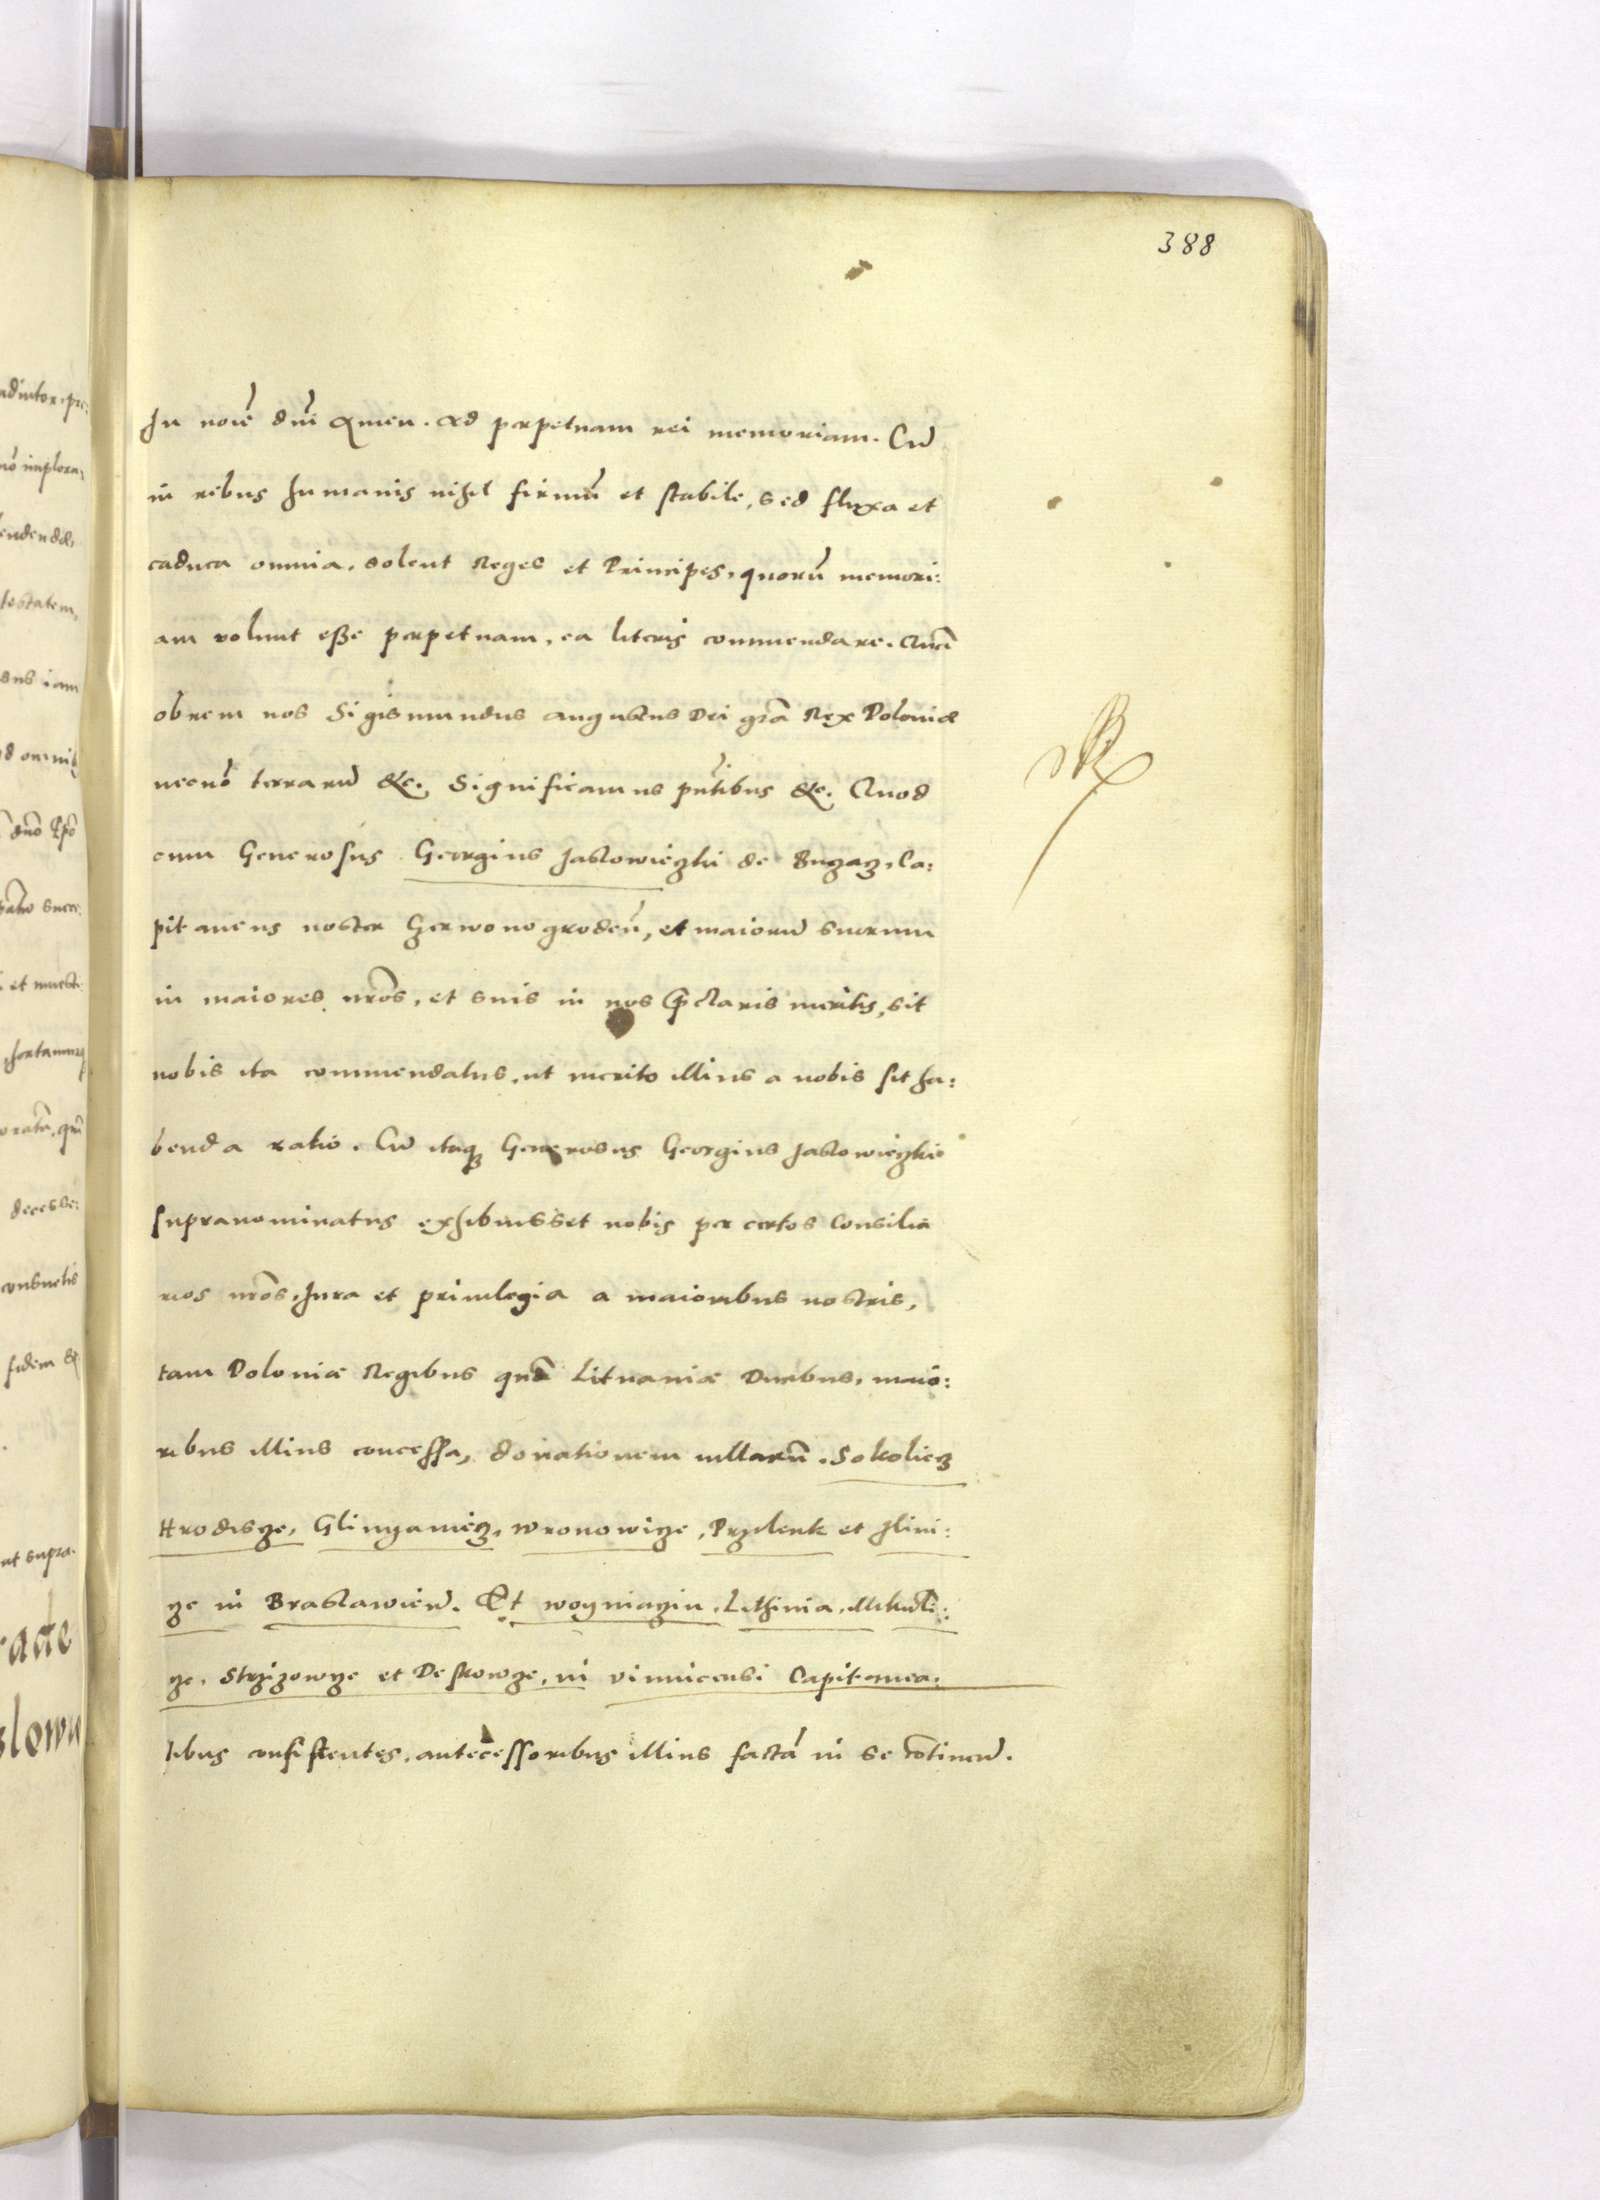 388
In noīe dnī Amen. Ad perpetuam rei memoriam. Cū
in rebus humanis nihil firmū et stabile, sed fluxa et
caduca omnia, solent Reges et Principes, quorū memori:
am volunt esse perpetuam, ea literis commendare. Quā
obrem nos Sigismundus augustus Dei grā Rex Poloniæ
necnō terrarū &c. Significamus pn̄tibus &c. Quod
cum Generosus Georgius Jaslowieczki de Buczacz, Ca:
pitaneus noster Czerwonogroden̄, et maiorū suorum
in maiores nrōs, et suis in nos p̄claris meritis, sit
nobis ita commendatus, ut merito illius a nobis sit ha:
benda ratio. Cū itaq; Generosus Georgius Jaslowieczki
supranominatus exhibuisset nobis per certos Consilia
rios nrōs, Jura et priuilegia a maioribus nostris,
tam Poloniæ Regibus quā Lituaniæ Ducibus, maio:
ribus illius concessa, donationem villarū. Sokoliecz
Hrodiscze, Glinyaniecz, Wronowicze, Przilenk et Ilini:
cze in Braslawień. Et woyniaczin, Lithinia, Mikuli:
cze, Strzizowcze et Deskowcze, in vinnicensi Capitanea:
tibus consistentes, antecessoribus illius factā in se cōtinen̄.
adiutor, pre:
nō implora,
endendæ,
testatem,
sus iam
d omnib;
dnō Epō
succe:
et inuesti
hortamurq;
decesse:
consuetis
fidem &
ut supra.